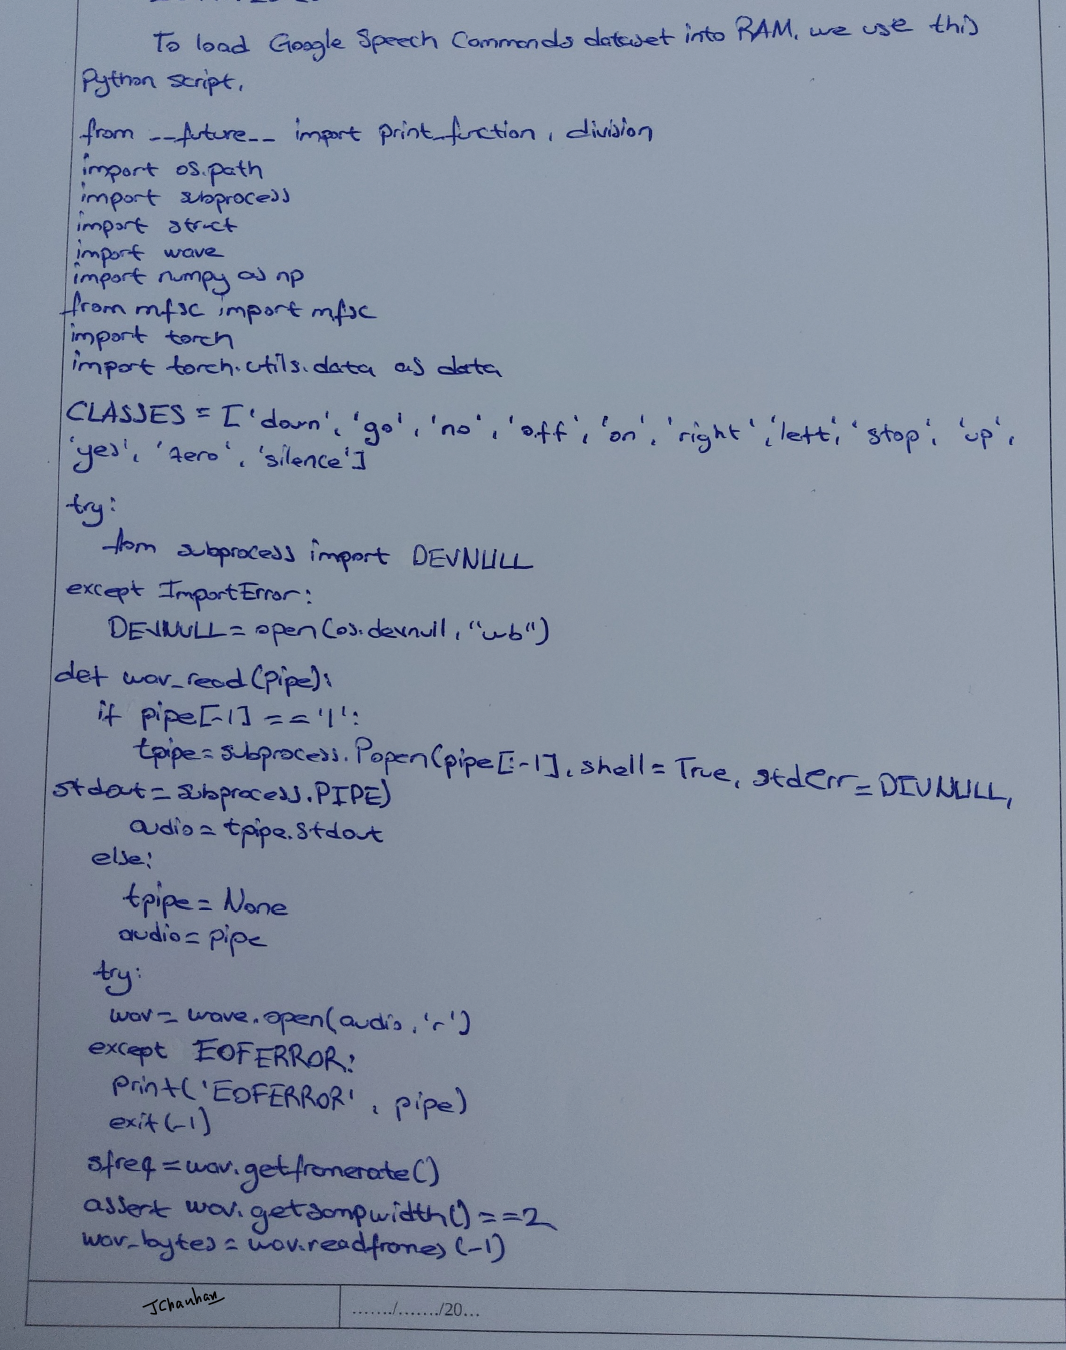 To load Google Speech Commands dataset into RAM, we use this
Python script,
from __future__ import print_function, division
import os.path
import subprocess
import struct
import wave
import numpy as np
from mfsc import mfsc
import torch
import torch.utils.data as data
CLASSES = ['down', 'go', 'no', 'off', 'on', 'right', 'left', 'stop', 'up',
'yes', 'zero', 'silence']
try:
from subprocess import DEVNULL
except ImportError:
DEVNULL = open(os.devnull, "wb")
def wav_read(pipe):
if pipe[-1] == '|':
tpipe = subprocess.Popen(pipe[:-1], shell = True, stderr = DEVNULL,
stdout = subprocess.PIPE)
audio = tpipe.stdout
else:
tpipe = None
audio = pipe
try:
wav = wave.open(audio, 'r')
except EOFERROR:
print('EOFERROR', pipe)
exit(-1)
sfreq = wav.getframerate()
assert wav.getsampwidth() == 2
wav_bytes = wav.readframes(-1)
JChauhan
......./......./20...